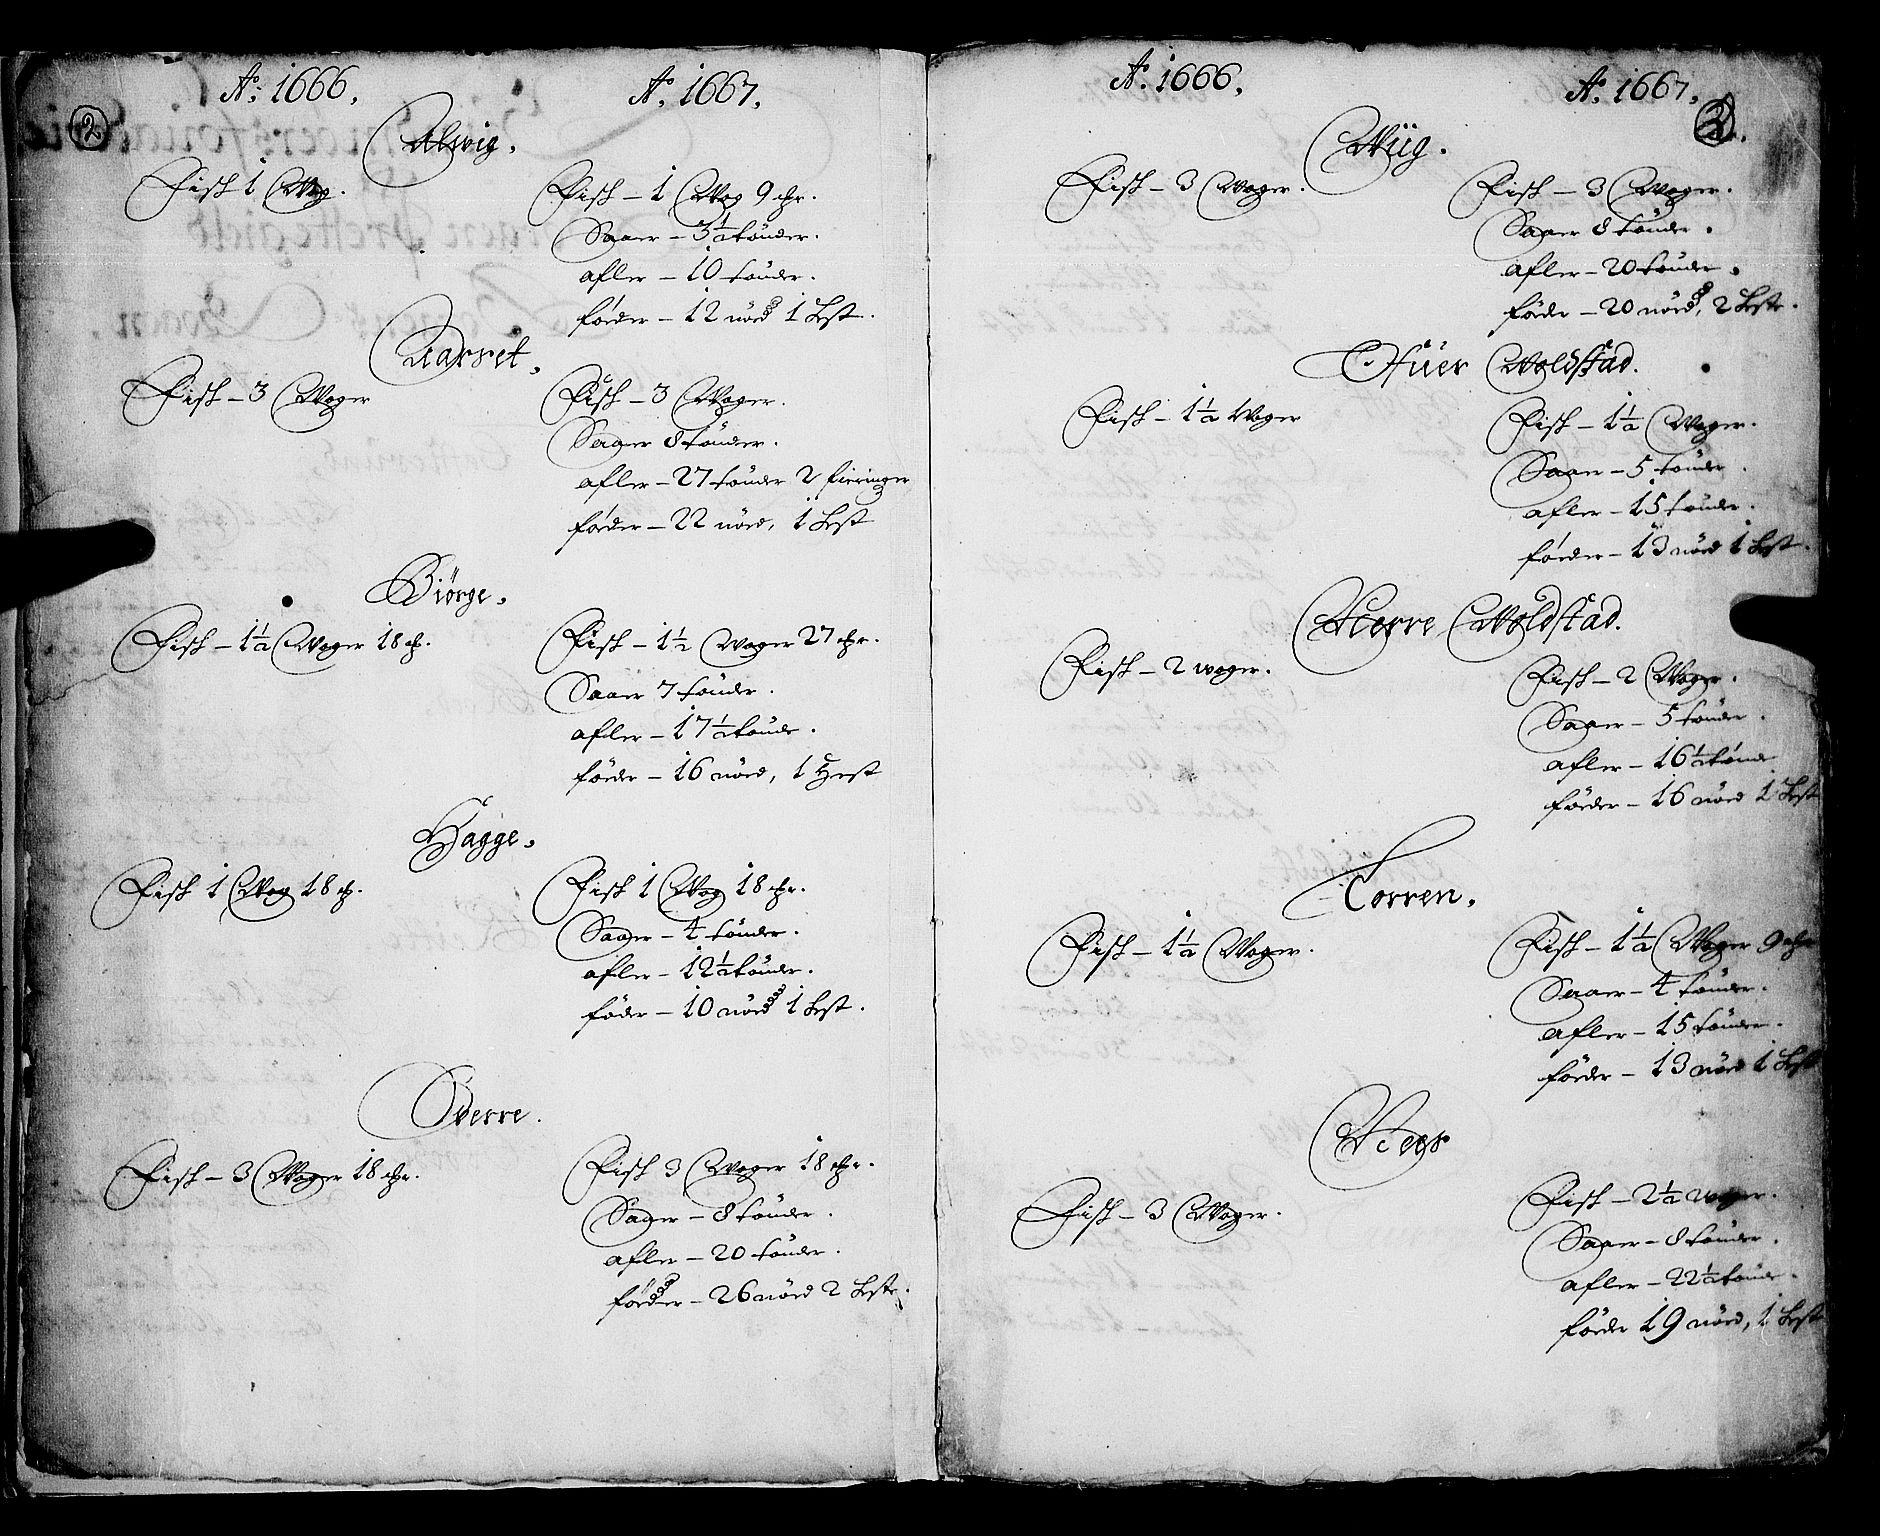 2
Ao. 1666.
Ao. 1667.
Alwig.
Fisk 1 Wog.
Fisk – 1 Wog 9 mkr.
Saaer – 3½ tönder.
afler – 10 tönder.
föder – 12 nöed 1 Hest.
Aarset.
Fisk – 3 Woger
Fisk – 3 Woger.
Saaer 8 tönder.
afler – 27 tönder 2 fieringer
föder – 22 nöed, 1 Hest
Biörge.
Fisk – 1½ Woger 18 mk.
Fisk – 1½ Woger 27 mkr.
Saaer 7 tönder.
afler – 17½ tönder.
föder – 16 nöed, 1 Hest
Hagge.
Fisk 1 Wog 18 mk.
Fisk 1 Wog 18 mkr.
Saaer – 4 tönder.
afler – 12½ tönder.
föder – 10 nöed 1 Hest.
Öderre.
Fisk – 3 Woger 18 mkr.
Fisk 3 Woger 18 mkr.
Saaer – 8 tönder.
afler – 20 tönder.
föder – 26 nöed 2 Heste.
Ao. 1666.
Ao. 1667.
2.
Wiig.
Fisk – 3 Woger.
Fisk – 3 Woger.
Saaer 8 tönder.
afler – 20 tönder.
föder – 20 nöed, 2 Heste.
Öfuer Woldstad.
Fisk – 1½ Woger
Fisk – 1½ Woger.
Saaer – 5 tönder.
afler – 15 tönder.
föder – 13 nöed 1 Hest.
Nerre Woldstad.
Fisk – 2 woger.
Fisk – 2 Woger.
Saaer – 5 tönder.
afler – 16½ tönder
föder – 16 nöed 1 Hest
Torren.
Fisk – 1½ Woger.
Fisk – 1½ Woger 9 mkr
Saaer – 4 tönder.
afler – 15 tönder.
föder – 13 nöed 1 Hest
Fisk – 3 Woger.
Fisk – 2½ woger.
Saaer – 8 tönder.
afler – 22½ tönder.
föder 19 nöed, 1 Hest